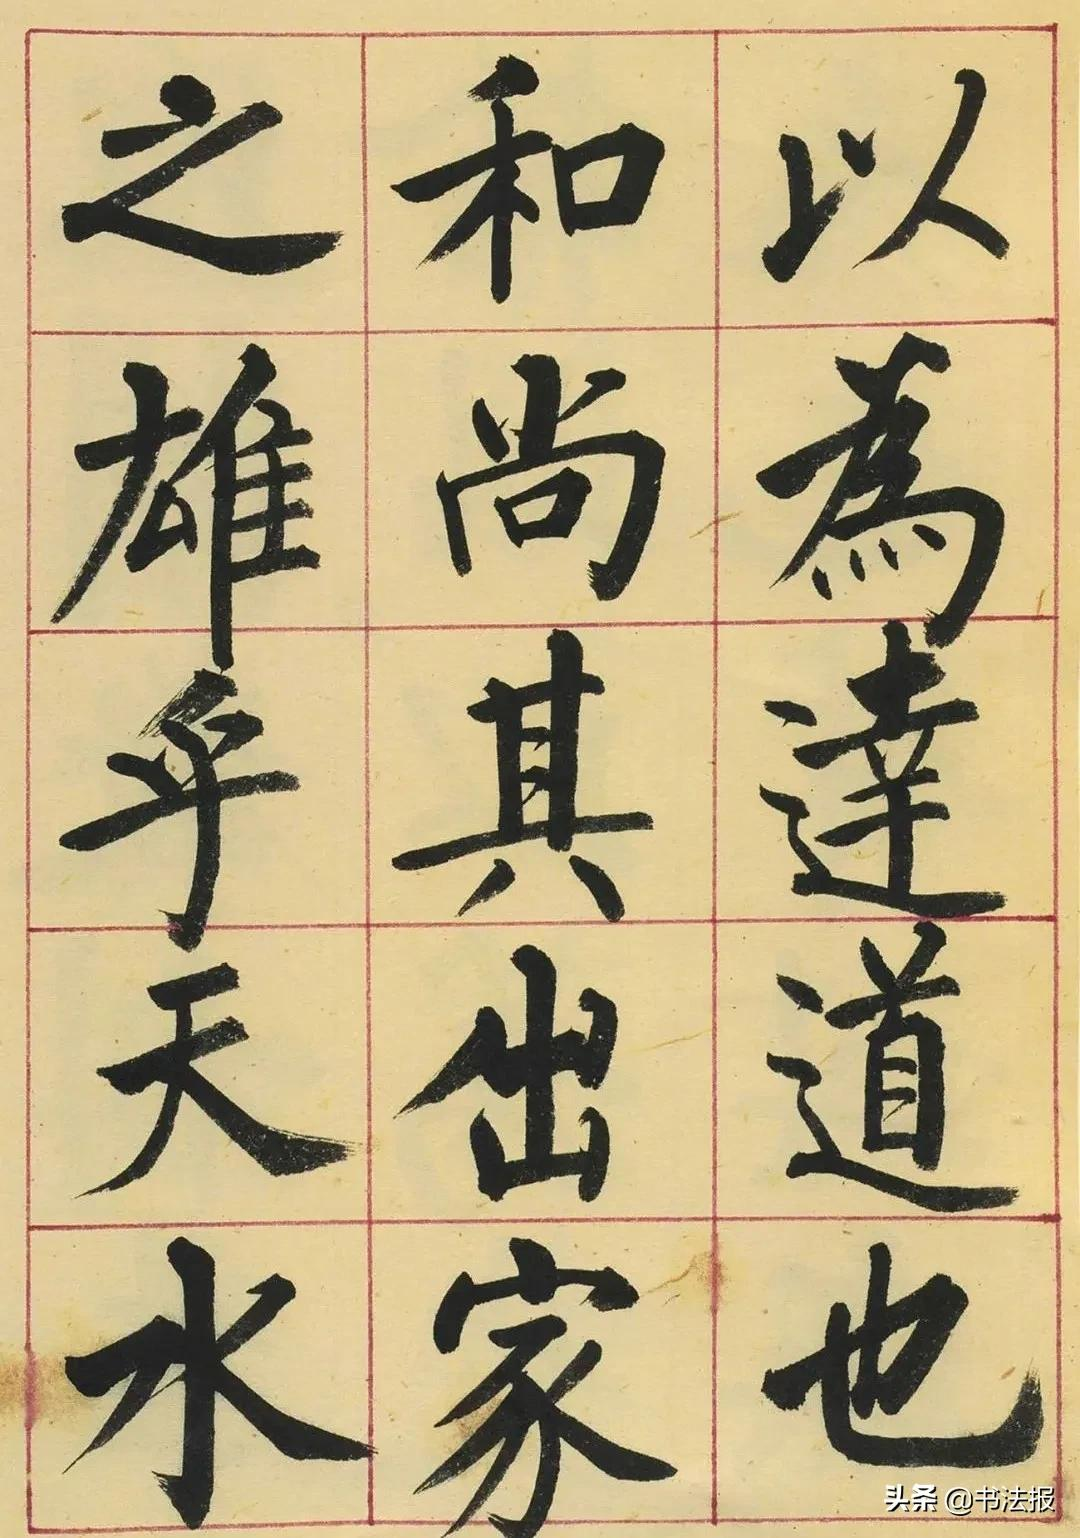 以為達道也
和尚其出家
之雄乎天水
头条 @书法报